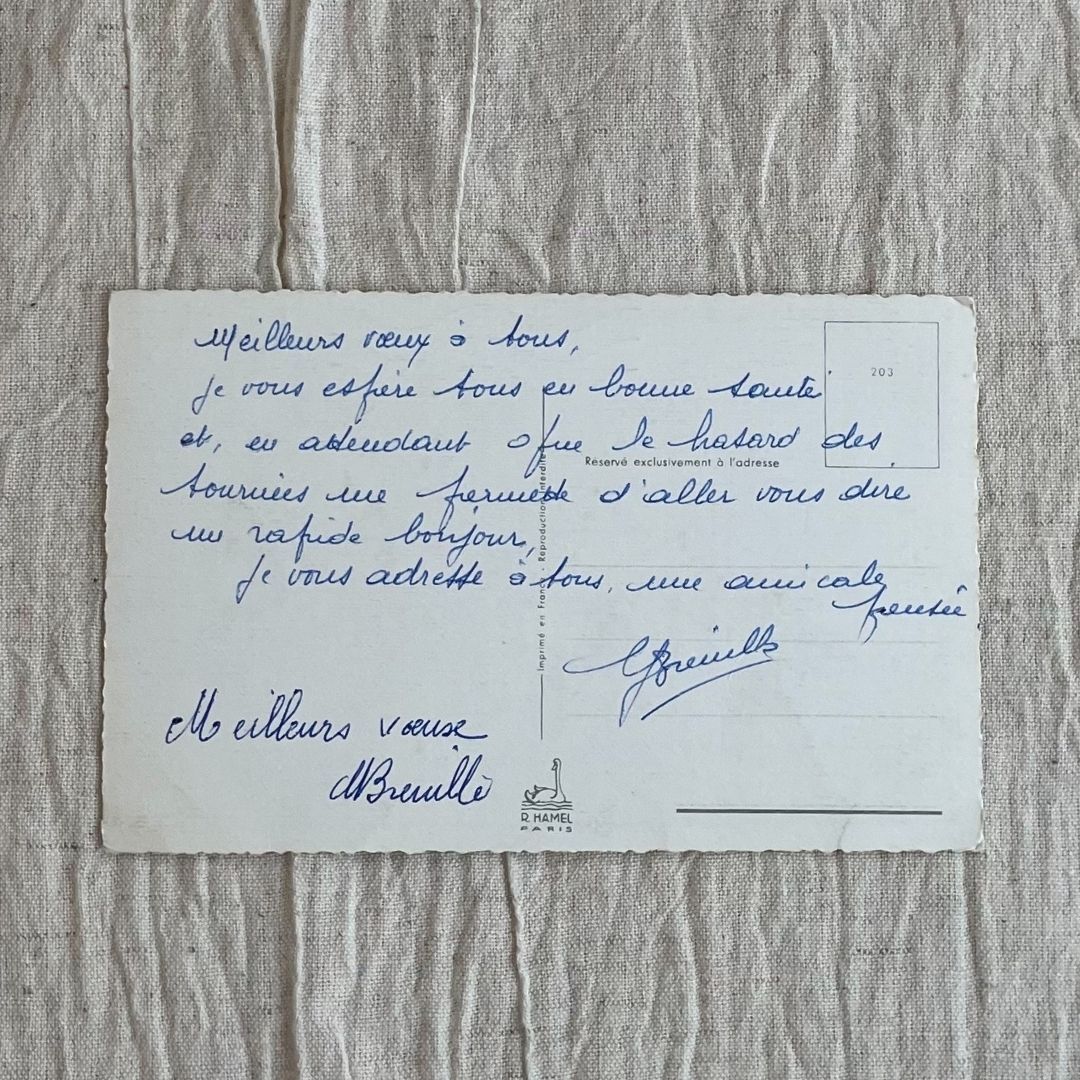 Meilleurs vœux à tous,
je vous espère tous en bonne santé
et, en attendant que le hasard des
tournées me permette d'aller vous dire
un rapide bonjour,
je vous adresse à tous, une amicale
pensée
Meilleurs vœux
Breuillé
203
Réservé exclusivement à l'adresse
Imprimé en France - Reproduction interdite
R. HAMEL
PARIS